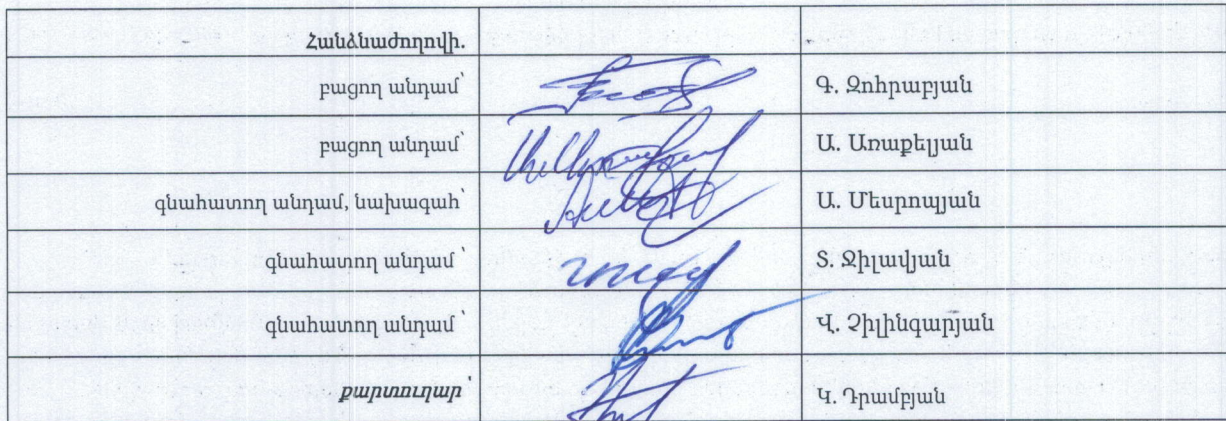 Հանձնաժողովի.
բացող անդամ՝ Գ. Զոհրաբյան
բացող անդամ՝ Ա. Առաքելյան
գնահատող անդամ, նախագահ՝ Ա. Մեսրոպյան
գնահատող անդամ՝ Տ. Ջիլավյան
գնահատող անդամ ՝ Վ. Չիլինգարյան
քարտուղար՝ Կ. Դրամբյան